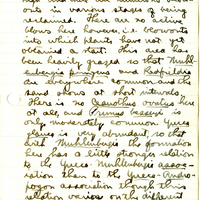 in various stages of being
reclaimed. There are no active
blows here however, i.e. blowouts
into which plants have not yet
obtained a start. This area has
been heavily grazed so that Muhl-
enbergia pungens and Redfieldia
are everywhere common and the
sand shows at short intervals.
There is no Ceanothus ovatus here
at all, and Prunus besseyi is
only moderately common. Yucca
glauca is very abundant, so that
with Muhlenbergia the formation
here has a little stronger relation
to the Yucca-Muhlenbergia assoc-
iation than to the Yucca-Andro-
pogon association though this
relation varies on the different